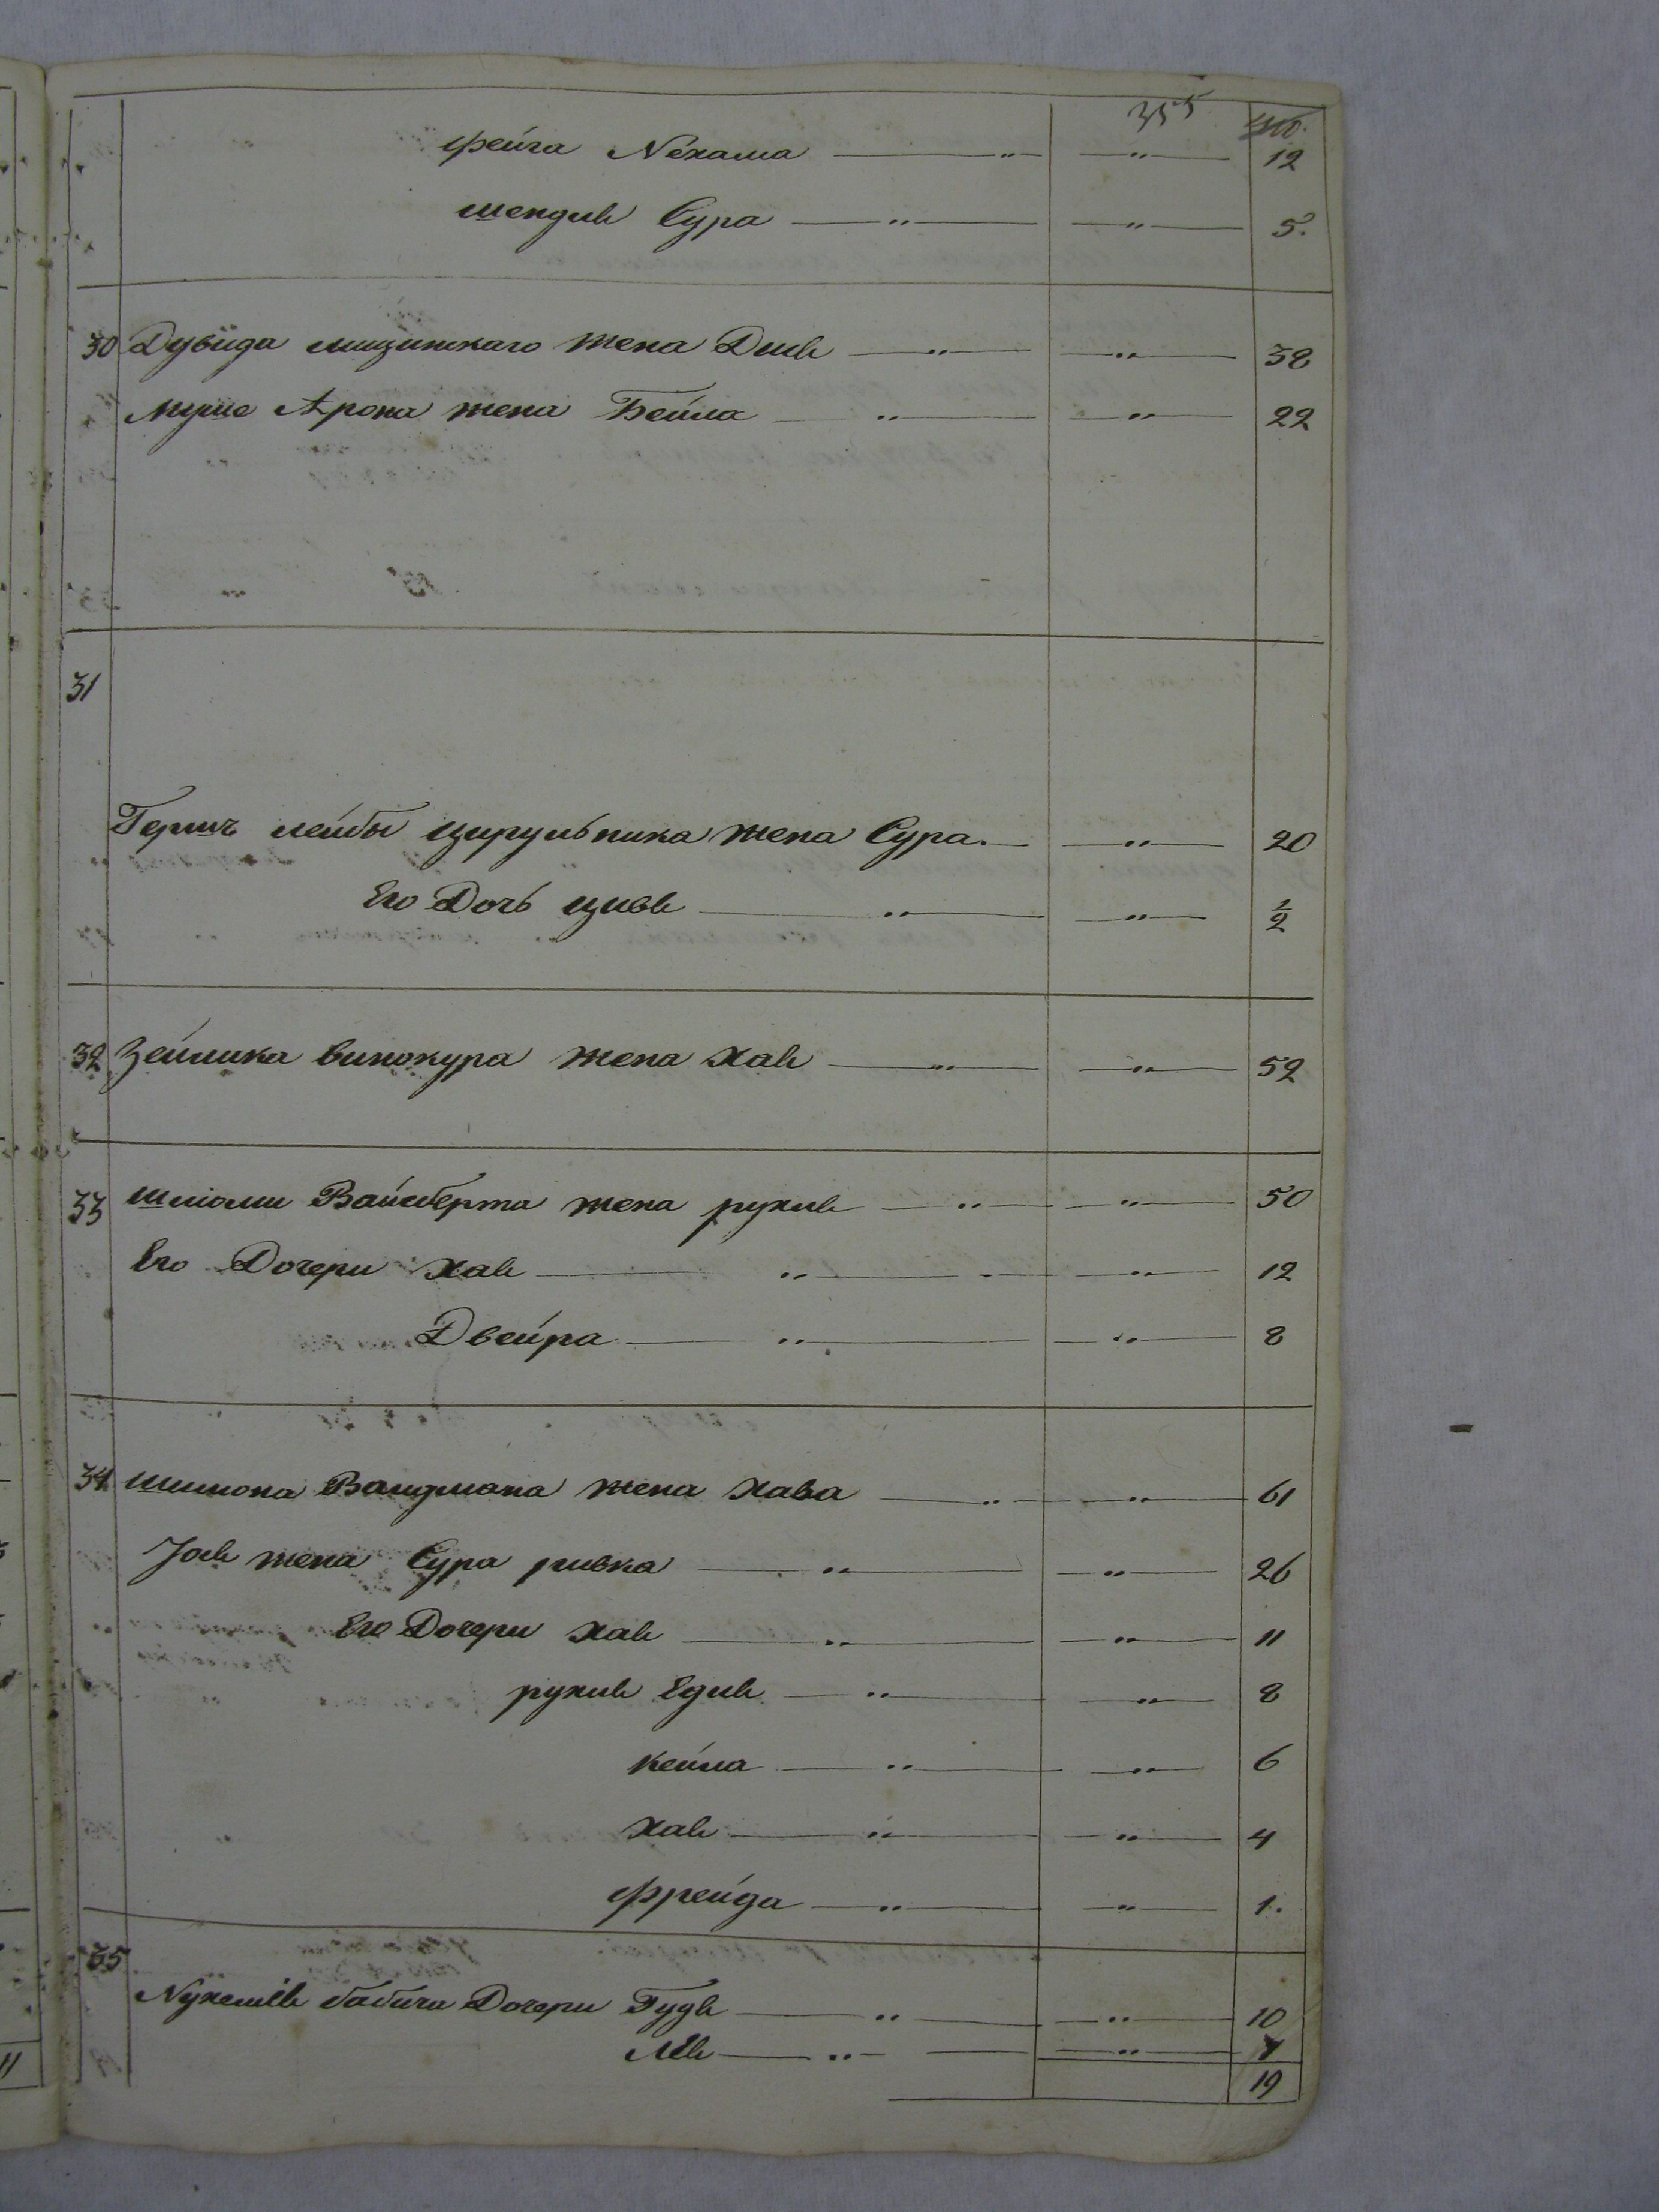 355
фейга Nехама — " — — " — 12
шендль Сура — " — — " — 5.
30 Дувида мизинскаго жена Дисль — " — — " — 38
Мусие Арона жена Бейла — " — — " — 22
31
Гершъ лейбы цирульника жена Сура. — — " — 20
Его Дочь цивье — " — — " — 1/2
32 Зейлика винокура жена Хае — " — — " — 52
33 шлиоми Вайсберга жена рухль — " — — " — 50
Его Дочери Хае — " — — " — 12
Двейра — " — — " — 8
34 шимона Вайдмана жена Хава — " — — " — 61
Јось жена Сура ривка — " — — " — 26
Его Дочери Хае — " — — " — 11
рухль Едль — " — — " — 8
кейла — " — — " — 6
Хае — " — — " — 4
фрейда — " — — " — 1.
35
Nухемье бабича Дочери Гудя — " — — " — 10
Лея — " — — " — 7
19